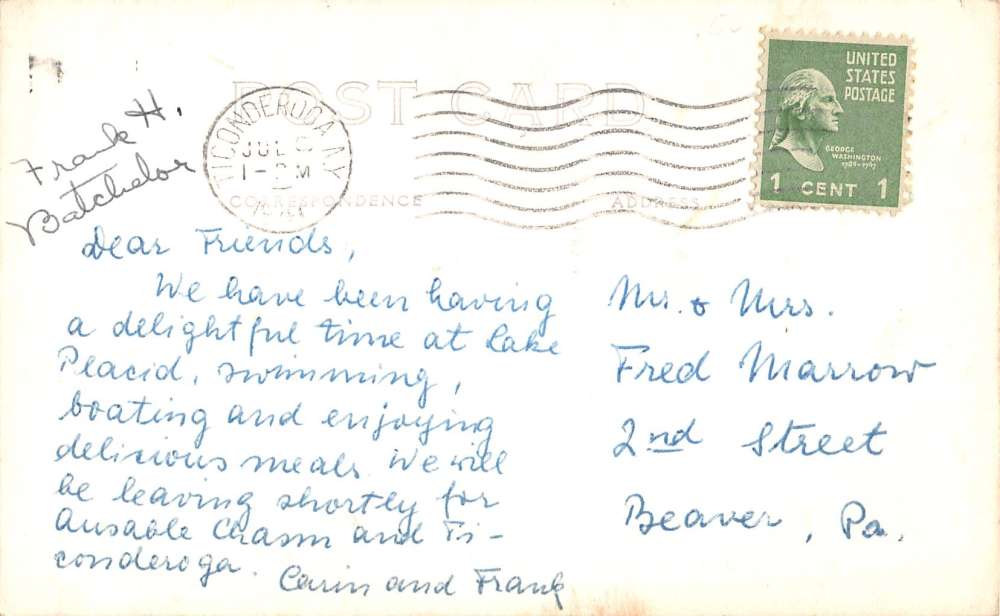 POST CARD
UNITED
STATES
POSTAGE
GEORGE
WASHINGTON
1789-1797
1 CENT 1
TICONDEROGA N.Y.
JUL
1 - PM
CORRESPONDENCE
ADDRESS
Frank H.
Batchelor
Dear Friends,
We have been having
a delightful time at Lake
Placid, swimming,
boating and enjoying
delicious meals. We will
be leaving shortly for
Ausable Chasm and Ti-
conderoga.
Carin and Frank
Mr. & Mrs.
Fred Marrow
2nd Street
Beaver, Pa.